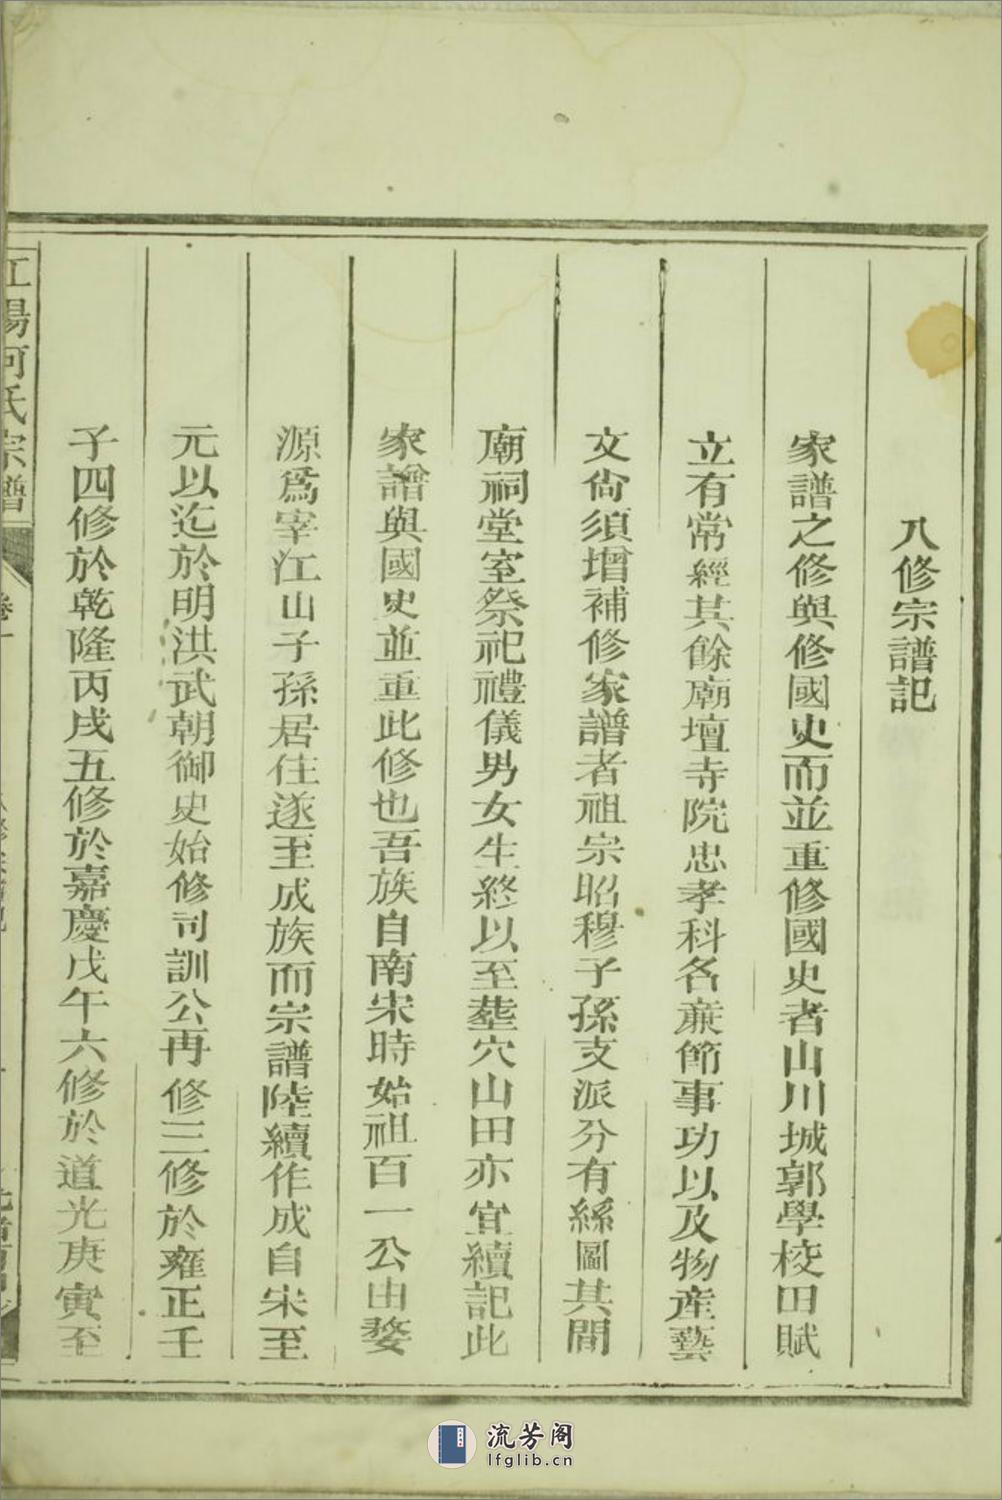 八修宗譜記
家譜之修與修國史而並重修國史者山川城郭學校田賦
立有常經其餘廟壇寺院忠孝科名亷節事功以及物產藝
文尙須增補修家譜者祖宗昭穆子孫支派分有絲圖其間
廟祠堂室祭祀禮儀男女生終以至塟穴山田亦宜續記此
家譜與國史並重此修也吾族自南宋時始祖百一公由婺
源爲宰江山子孫居住遂至成族而宗譜陸續作成自宋至
元以迄於明洪武朝御史始修司訓公再修三修於雍正壬
子四修於乾隆丙戌五修於嘉慶戊午六修於道光庚寅至
江陽何氏宗譜
卷一
八修宗譜記
一
流芳阁
lfglib.cn